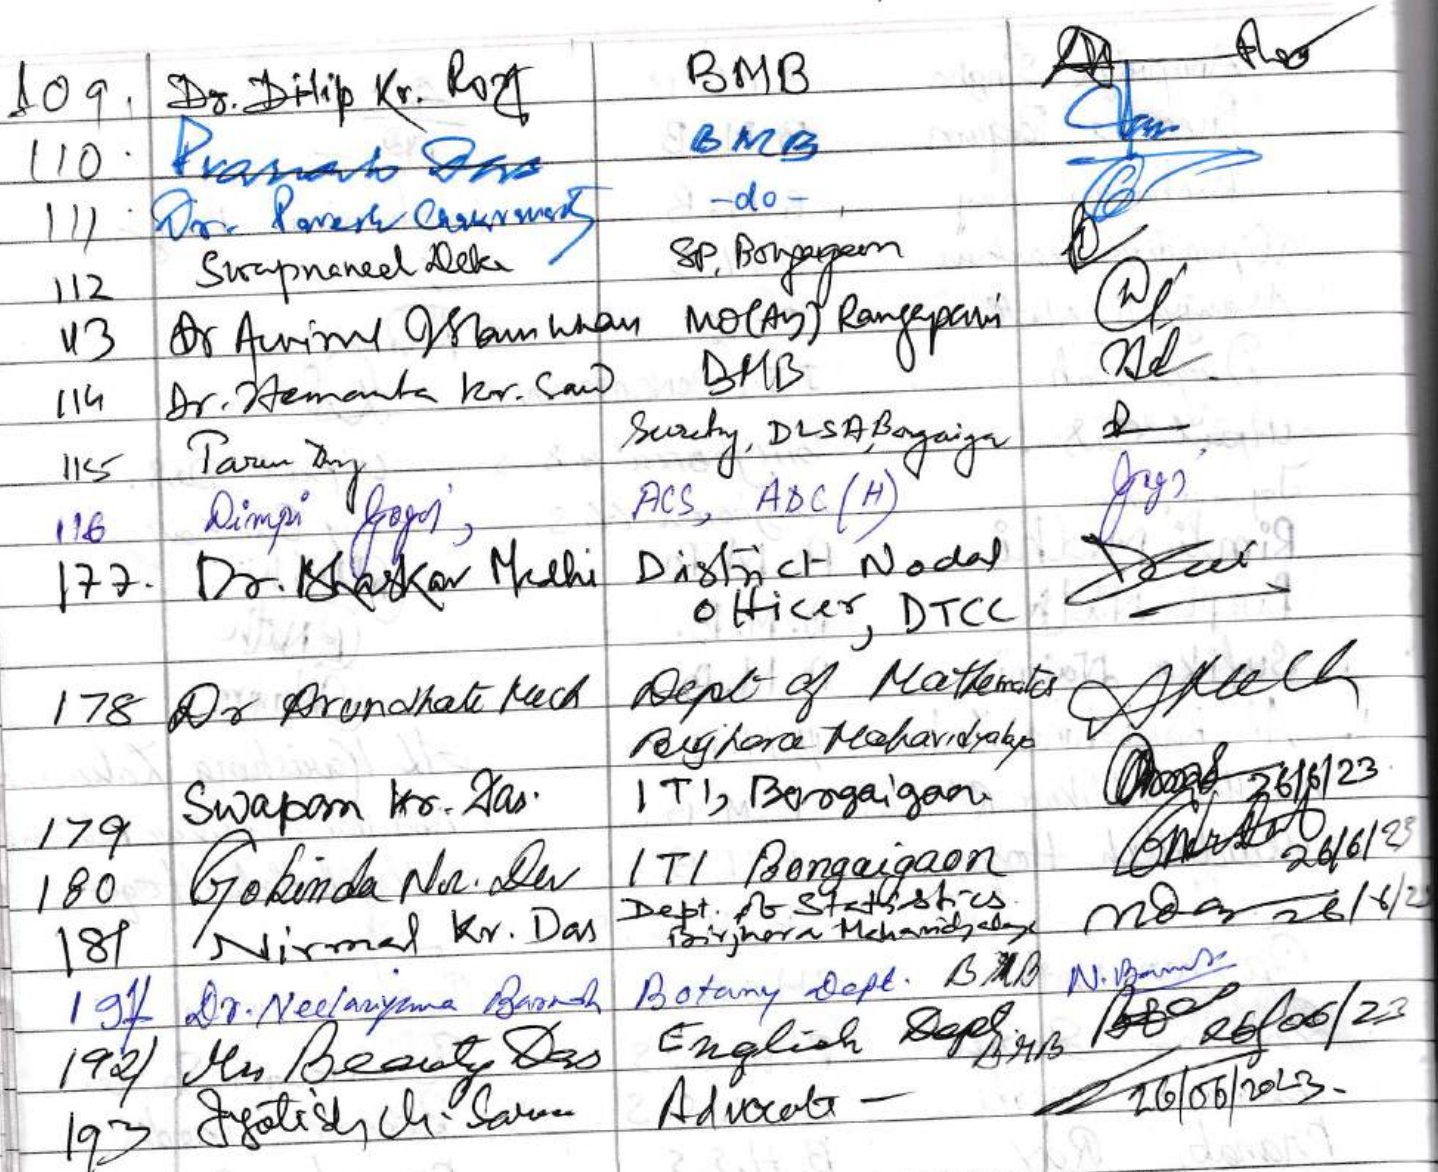 109. Dr. Dilip Kr. Roy BMB
110. Pranab Das BMB
111. Dr. Paresh Chakravarty -do-
112 Swapnaneel Deka SP, Bongaigaon
113 Dr Islam Khan MO(Ay) Rangapani
114 Dr. Hemanta Kr. BMB
115 Tarun DLSA, Bongaigaon
116 Dimpi Gogoi, ACS, ADC (H) Gogoi
177. Dr. Bhaskar Medhi District Nodal
Officer, DTCC
178 Dr Arundhati Mech Dept of Mathematics
Mahavidyalaya
179 Swapan Kr. Das. ITI, Bongaigaon 26/6/23
180 Gobinda Nr. Dev ITI Bongaigaon 26/6/23
181 Nirmal Kr. Das Dept. of Statistics NDas 26/6/23
Birjhora Mahavidyalaya
191 Dr. Neelanjana Botany Dept. BMB
192) Beauty Das English Dept 26/06/23
BMB
193 Jyotish Advocate — 26/06/2023.